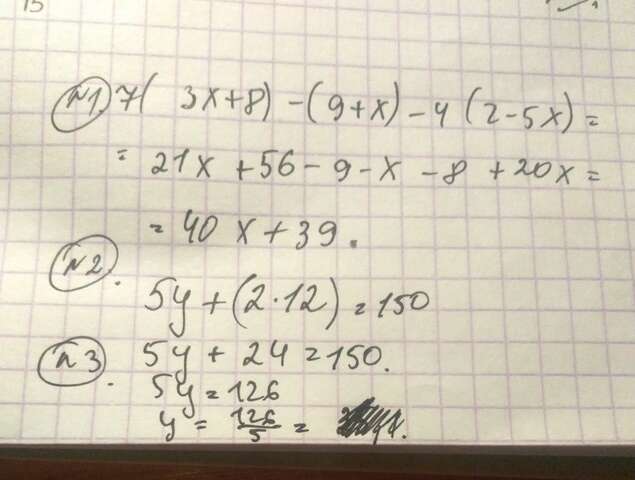 15
№1) 7( 3x+8) - (9+x) - 4 (2-5x) =
= 21x +56 - 9 - x - 8 + 20x =
= 40 x + 39.
№2.
5y + (2·12) = 150
№3. 5y + 24 = 150.
5y = 126
y = 126/5 =